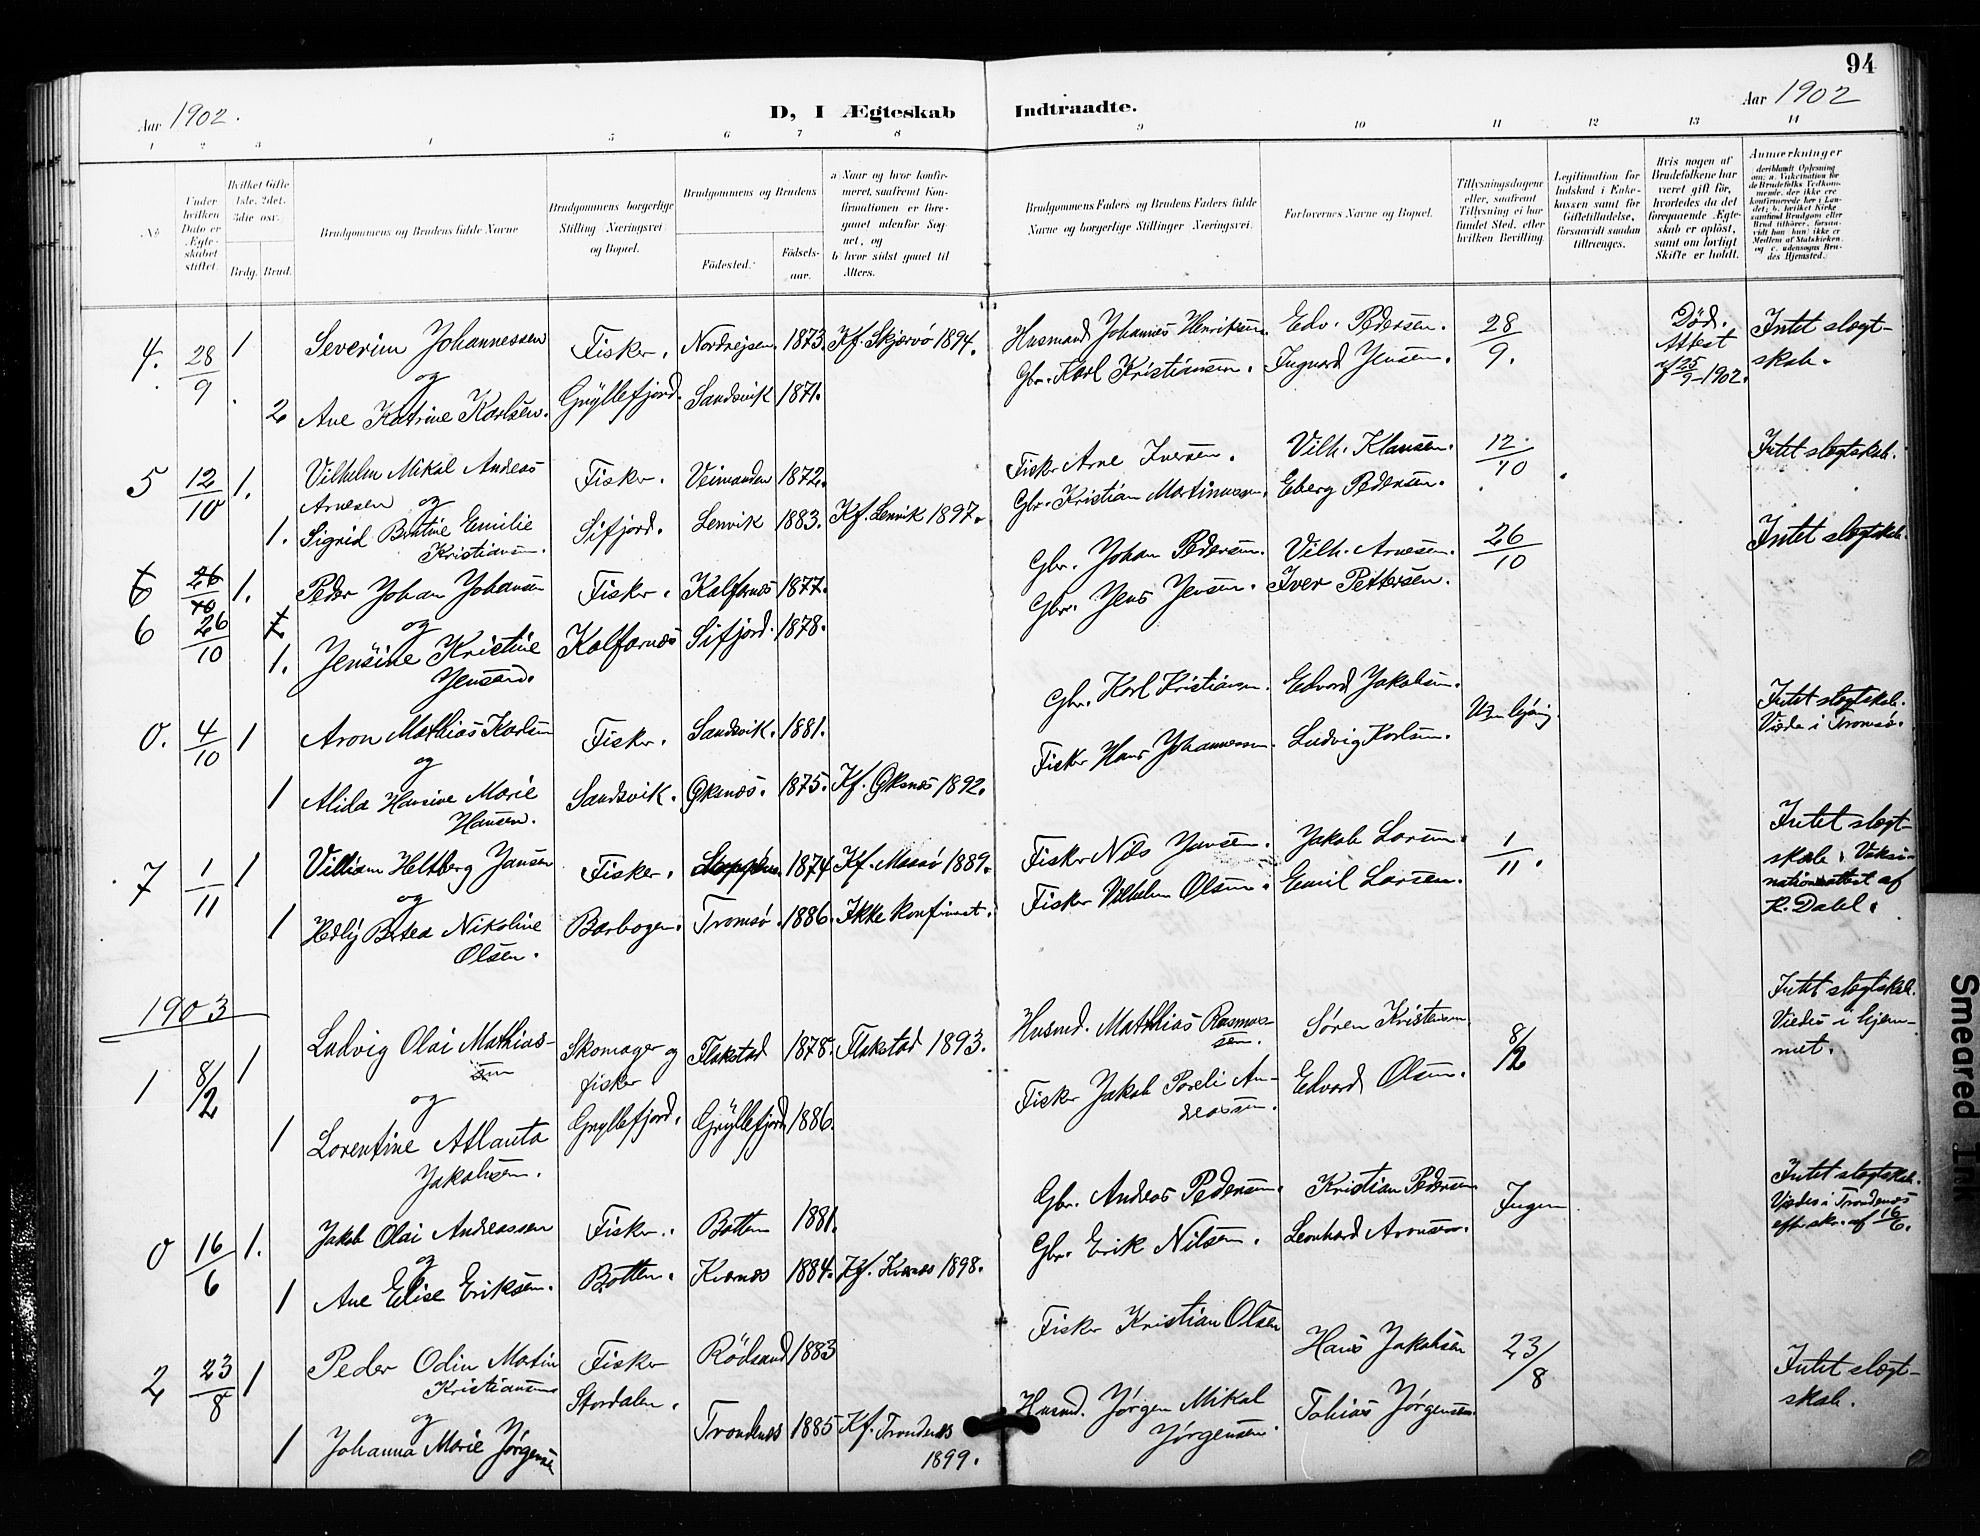 94
Aar 1902.
D, I Ægteskab
Indtraadte.
Aar 1902
1 2 3 4 5 6 7 8 9 10 11 12 13 14
No
Under hvilken Dato er Ægteskabet stiftet.
Hvilket Gifte 1ste. 2det. 3die osv.
Brdg. Brud.
Brudgommens og Brudens fulde Navne
Brudgommens borgerlige Stilling (Næringsvei og Bopæl.
Brudgommens og Brudens
Födested.
Födselsaar.
a Naar og hvor konfirmeret, saafremt Konfirmationen er foregaaet udenfor Sognet, og
b hvor sidst gaaet til Alters.
Brudgommens Faders og Brudens Faders fulde Navne og borgerlige Stillinger Næringsvei.
Forlovernes Navne og Bopæl.
Tillysningsdagene eller, saafremt Tillysning ei har fundet Sted, efter hvilken Bevilling.
Legitimation for Indskud i Enkekassen samt for Giftetilladelse, forsaavidt saadan tiltrænges.
Hvis nogen af Brudefolkene har været gift før, hvorledes da det foregaaende Ægteskab er oplöst, samt om lovligt Skifte er holdt.
Anmærkninger
deriblandt Oplysning om: a. Vakcination for de Brudefolks Vedkommende, der ikke ere konfirmerede her i Landet; b. hvilket Kirkesamfund Brudgom eller Brud tilhörer, forsaavidt han (hun) ikke er Medlem af Statskirken, og c. udensogns Brudes Hjemsted.
4. 28/9 1 Severin Johannessen Fisker. Nordrejsen. 1873. Kf. Skjærvö 1894. Husmand Johannes Henriksen. Edv. Pedersen. 28/9. Død. Attest af 25/9-1902. Intet slægtskab.
og
2 Ane Katrine Karlsen. Gryllefjord. Sandsvik 1871. Gbr. Karl Kristiansen. Ingvard Jensen.
5 12/10 1. Vilhelm Mikal Andreas Arnesen Fisker. Veimanden 1872. Fisker Arne Iversen. Vilh. Klausen. 12/10 Intet slægtskab.
og
1. Sigrid Emilie Kristiansen. Sifjord. Lenvik 1883. Kf. Lenvik 1897. Gbr. Kristian Martinussen. Eberg Pedersen.
6 26/10 1. Peder Johan Johansen Fisker. Kalfarnes 1877. Gbr. Johan Pedersen. Vilh. Arnesen. 26/10 Intet slægtskab.
6 26/10 og
1. Jensine Kristine Jensen. Kalfarnes Sifjord. 1878. Gbr. Jens Jensen. Iver Pettersen.
0. 4/10 1 Aron Mathias Karlsen Fisker. Sandsvik. 1881. Gbr. Karl Kristiansen. Edvard Jakobsen. Intet slægtskab. Viede i Tromsö.
og
1 Alida Hansine Marie Hansen. Sandsvik. Øksnes. 1875. Kf. Øksnes 1892. Fisker Hans Johannessen. Ludvig Karlsen.
7 1/11 1 Villiam Heltberg Jansen Fisker. 1874 Kf. Maasö 1889. Fisker Nils Jansen. Jakob Larsen. 1/11. Intet slægtskab. Vaksinationsattest af K. Dahl.
og
1 Hedly Nikoline Olsen. Barbogen. Tromsö. 1886. Ikke konfirmert. Fisker Vilhelm Olsen. Emil Larsen.
1903
1 8/2 1 Ludvig Olai Mathiassen Skomager og fisker Flakstad 1878. Flakstad 1893. Husmd. Mathias Rasmussen. Søren Kristensen 8/2 Intet slægtskab. Viedes i hjemmet.
og
1 Lorentine Atlanta Jakobsen. Gryllefjord. Gryllefjord 1886. Fisker Jakob Pareli Andreassen. Edvard Olsen.
0 16/6 1. Jakob Olai Andreassen Fisker. Botten 1881. Gbr. Andreas Pedersen. Kristian Pedersen Ingen Intet slægtskab. Vjedes i Trondenes eft. skr. af 16/6.
og
1 Ane Elise Eriksen. Botten. Kvænes 1884. Kf. Kvænes 1898. Gbr. Erik Nilsen. Leonhard Aronsen.
2 23/8 1 Peder Odin Martin Kristiansen Fisker Rödsand 1883 Fisker Kristian Olsen Hans Jakobsen 23/8 Intet slægtskab.
og Stordalen.
1 Johanna Marie Jørgensen Trondenes 1885 Kf. Trondenes 1899. Husmd. Jørgen Mikal Jørgensen. Tobias Jørgensen.
Smeared Ink